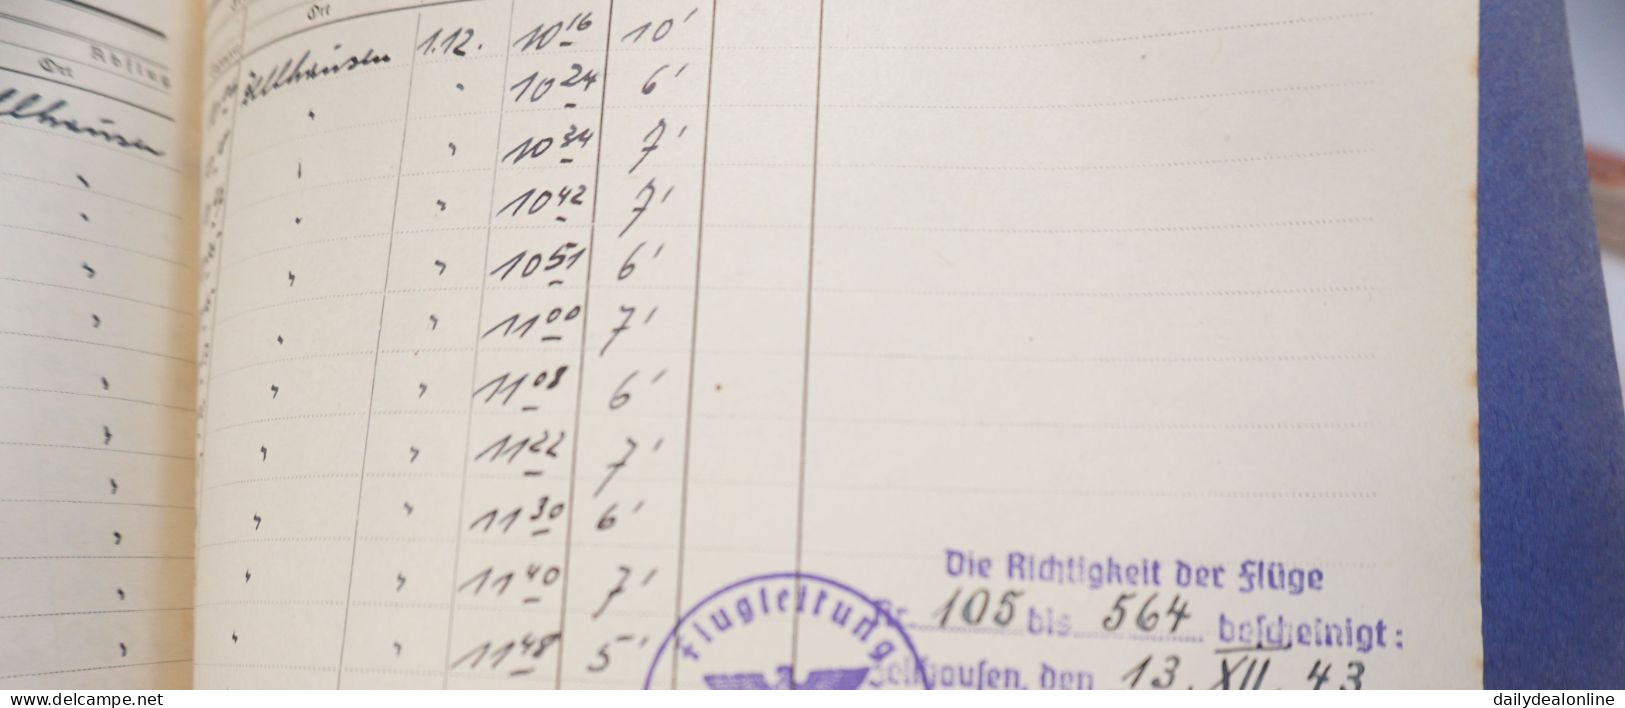 Ort
Abflug
Ort
Zellhausen 1.12. 10 16 10'
" " 10 24 6'
" " 10 34 7'
" " 10 42 7'
" " 10 51 6'
" " 11 00 7'
" " 11 08 6'
" " 11 22 7'
" " 11 30 6'
" " 11 40 7'
" " 11 48 5'
Die Richtigkeit der Flüge
Nr. 105 bis 564 bescheinigt:
Zellhausen, den 13. XII. 43
Flugleitung
www.delcampe.net
dailydealonline